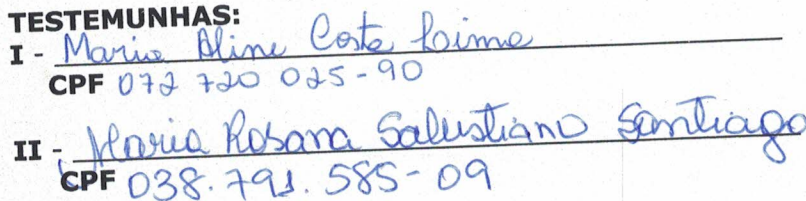 TESTEMUNHAS:
I - Maria Aline Costa Lima
CPF 072 720 025-90
II - Maria Rosana Salustiano Santiago
CPF 038.791.585-09